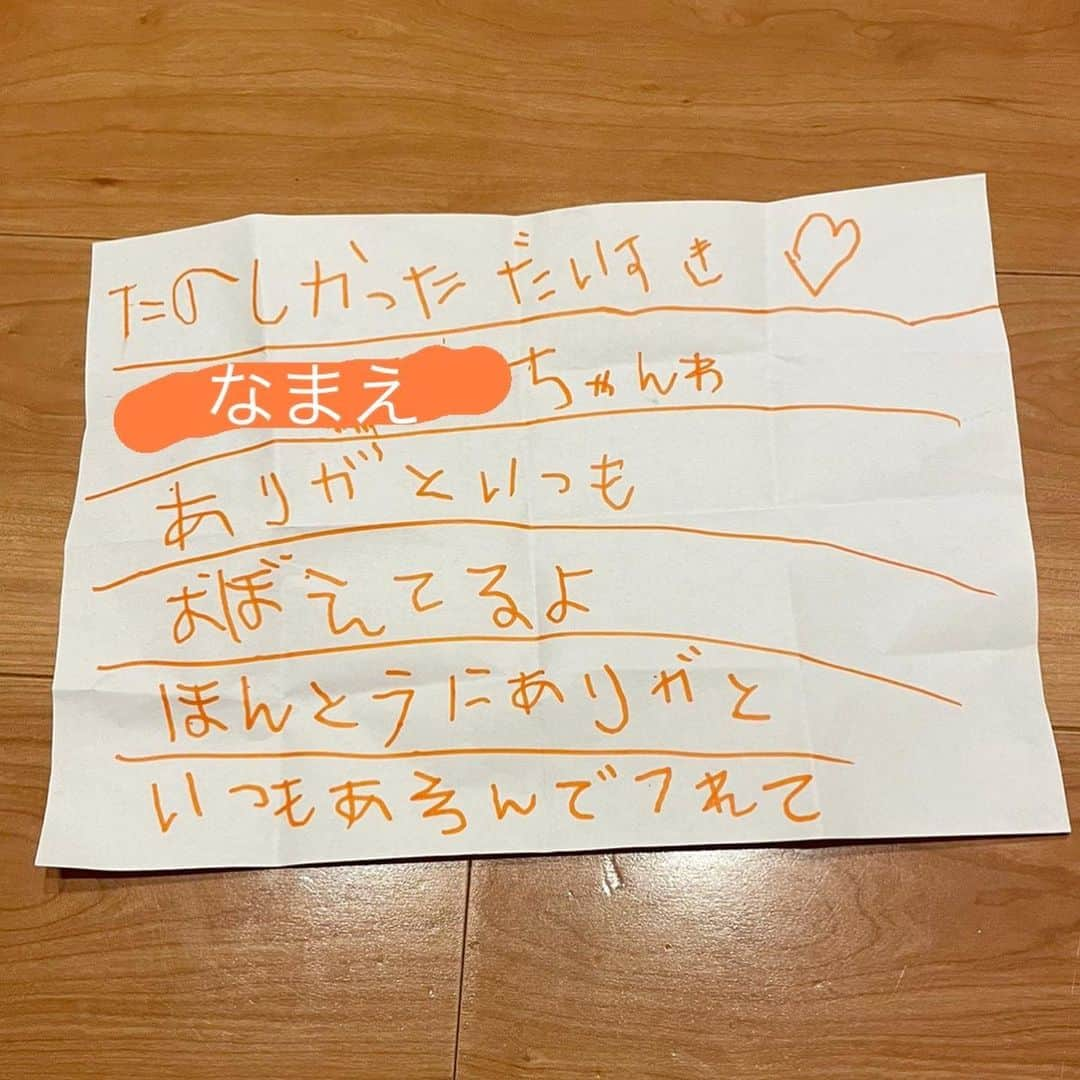 たのしかった だいすき ♡
なまえ ちゃんわ
ありがといつも
おぼえてるよ
ほんとうにありがと
いつもあそんでくれて